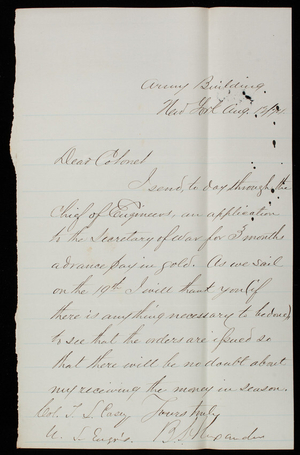 Army Building
New York Aug. 12/74.
Dear Colonel
I send, to day through the
Chief of Engineers, an application
to the Secretary of War for 3 months
advance pay in gold. As we sail
on the 19th I will thank you (if
there is anything necessary to be done)
to see that the orders are issued so
that there will be no doubt about
my receiving the money in season.
Col. T. L. Casey Yours truly
U. S. Engrs. B. S. Alexander